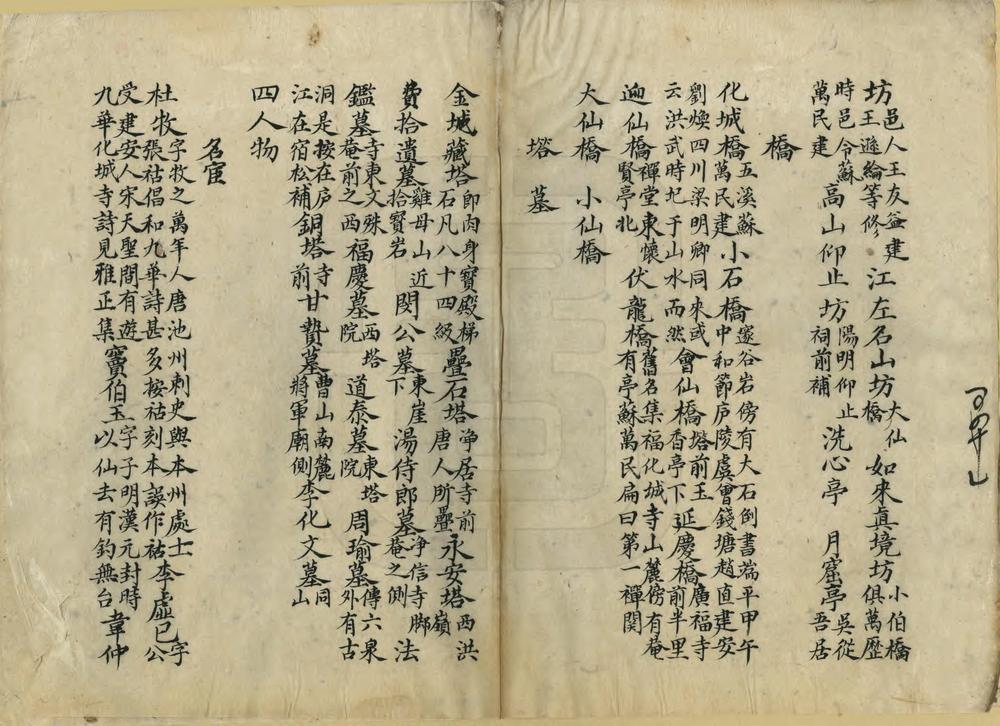 坊邑人王友益建王遜綸等修江左名山坊大仙橋如來真境坊小伯橋俱萬歷
時邑令蘇萬民建高山仰止坊陽明仰止祠前補洗心亭 月窟亭吳從吾居
橋
化城橋五溪蘇萬民建小石橋邃谷岩傍有大石倒書端平甲午中和節庐陵虞會錢塘趙直建安
劉煥四川梁明卿同來或云洪武時圮于山水而然會仙橋塔前玉香亭下延慶橋廣福寺前半里
迎仙橋禪堂東懷賢亭北伏龍橋舊名集福化城寺山麓傍有菴有亭蘇萬民扁曰第一禪関
大仙橋 小仙橋
塔 墓
金城藏塔即肉身寶殿梯石凡八十四級疊石塔淨居寺前唐人所壘永安塔西洪嶺
費拾遺墓雞母山近拾寶岩閔公墓東崖下湯侍郎墓淨信寺脚菴之側法
鑑墓寺東文殊菴前之西福慶墓西塔院道泰墓東塔院周瑜墓傳六泉外有古
洞是按在庐江在宿松補銅塔寺前甘贄墓曹山南麓將軍廟側李化文墓同山
四人物
名宦
杜牧字牧之萬年人唐池州刺史與本州處士張祜倡和九華詩甚多按祜刻本誤作祐李虛己字公
受建安人宋天聖間有遊九華化城寺詩見雅正集竇伯玉字子明漢元封時以仙去有釣無台韋仲